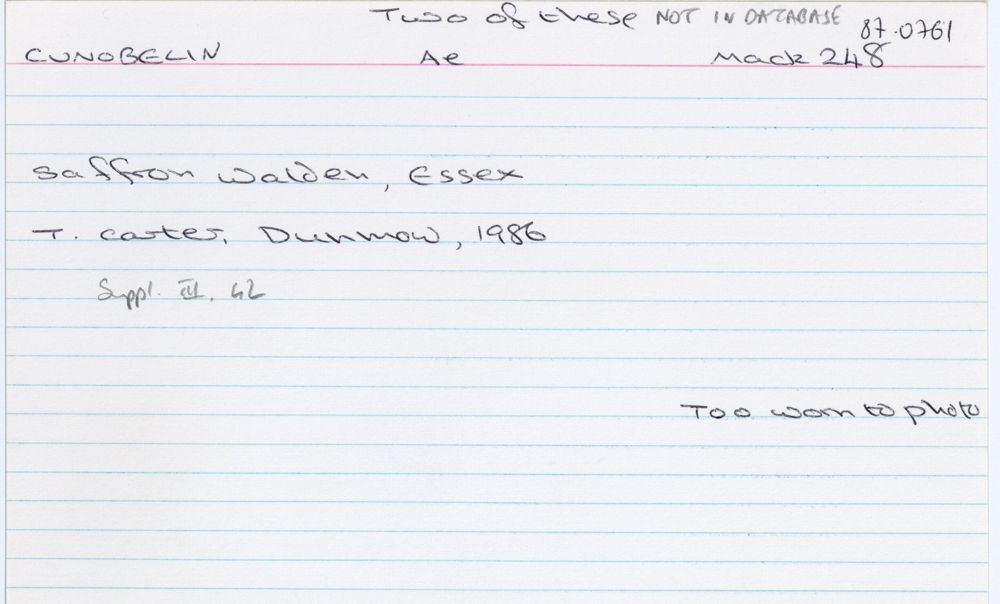 Two of these NOT IN DATABASE 87.0761
CUNOBELIN Ae Mack 248
Saffron Walden, Essex
T. Carter, Dunmow, 1986
Suppl. III. 42
Too worn to photo